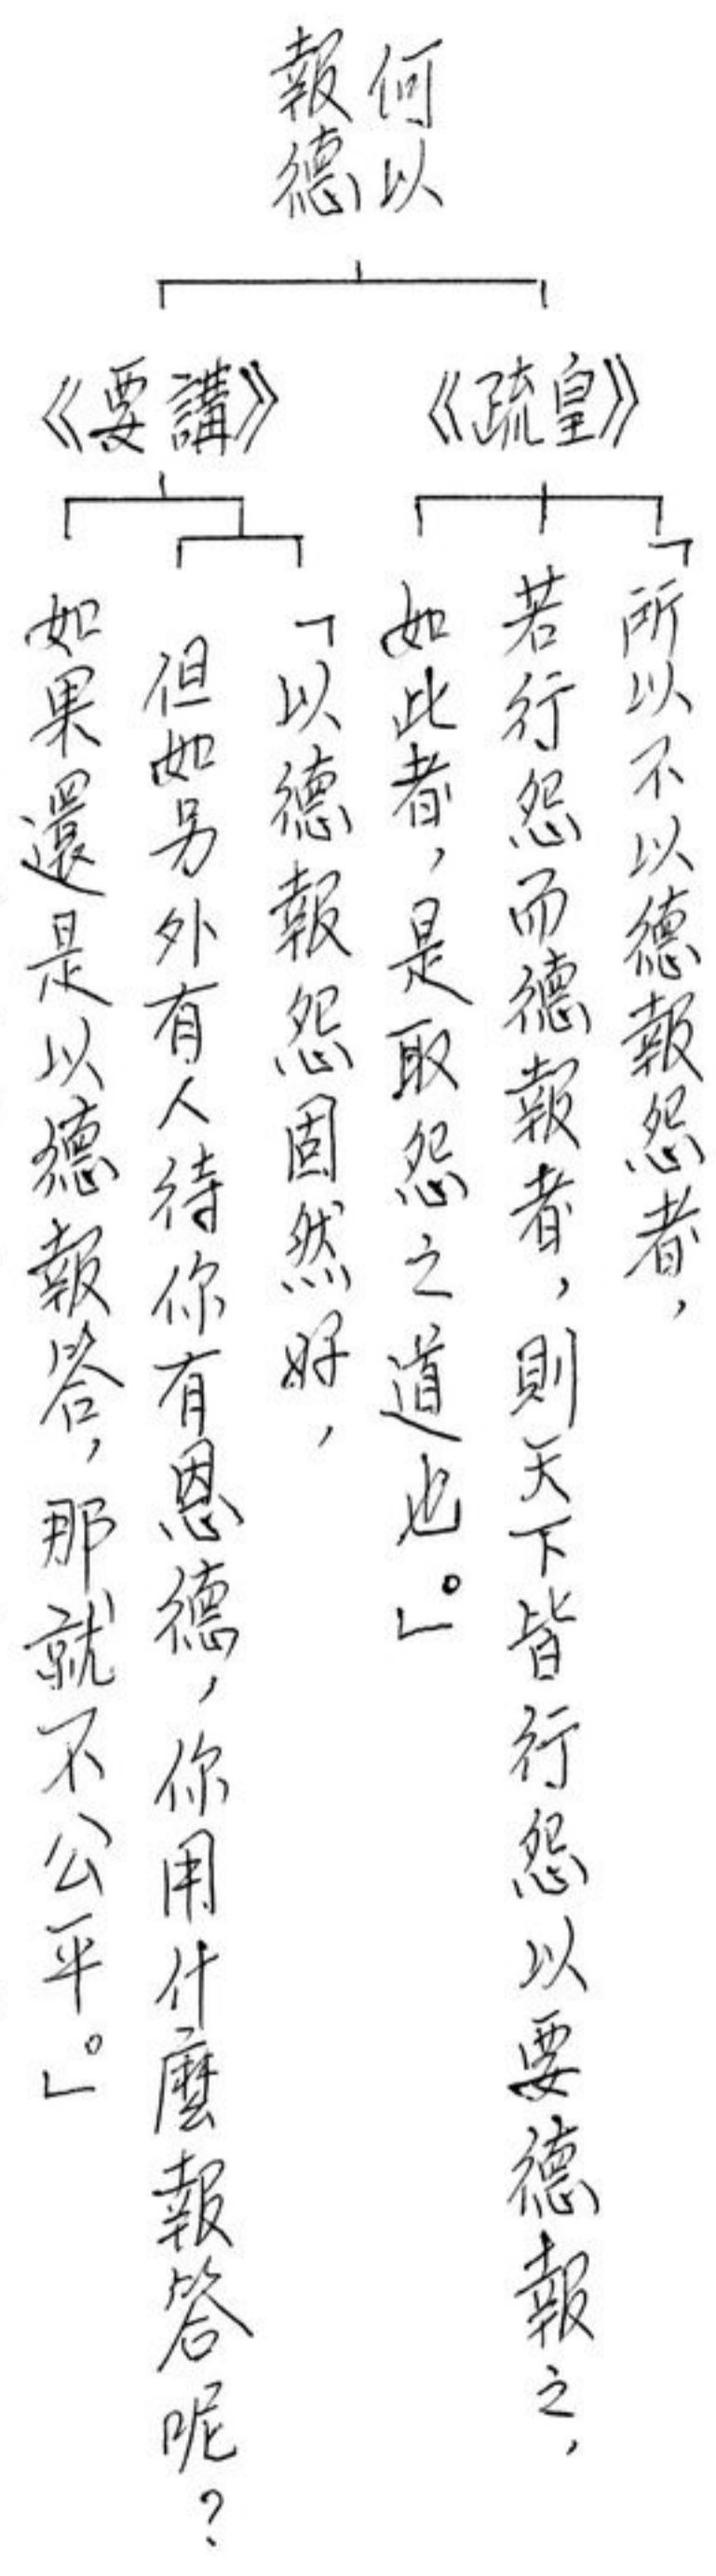 何以
報德
《皇疏》
「所以不以德報怨者，
若行怨而德報者，則天下皆行怨以要德報之，
如此者，是取怨之道也。」
《講要》
「以德報怨固然好，
但如另外有人待你有恩德，你用什麼報答呢？
如果還是以德報答，那就不公平。」